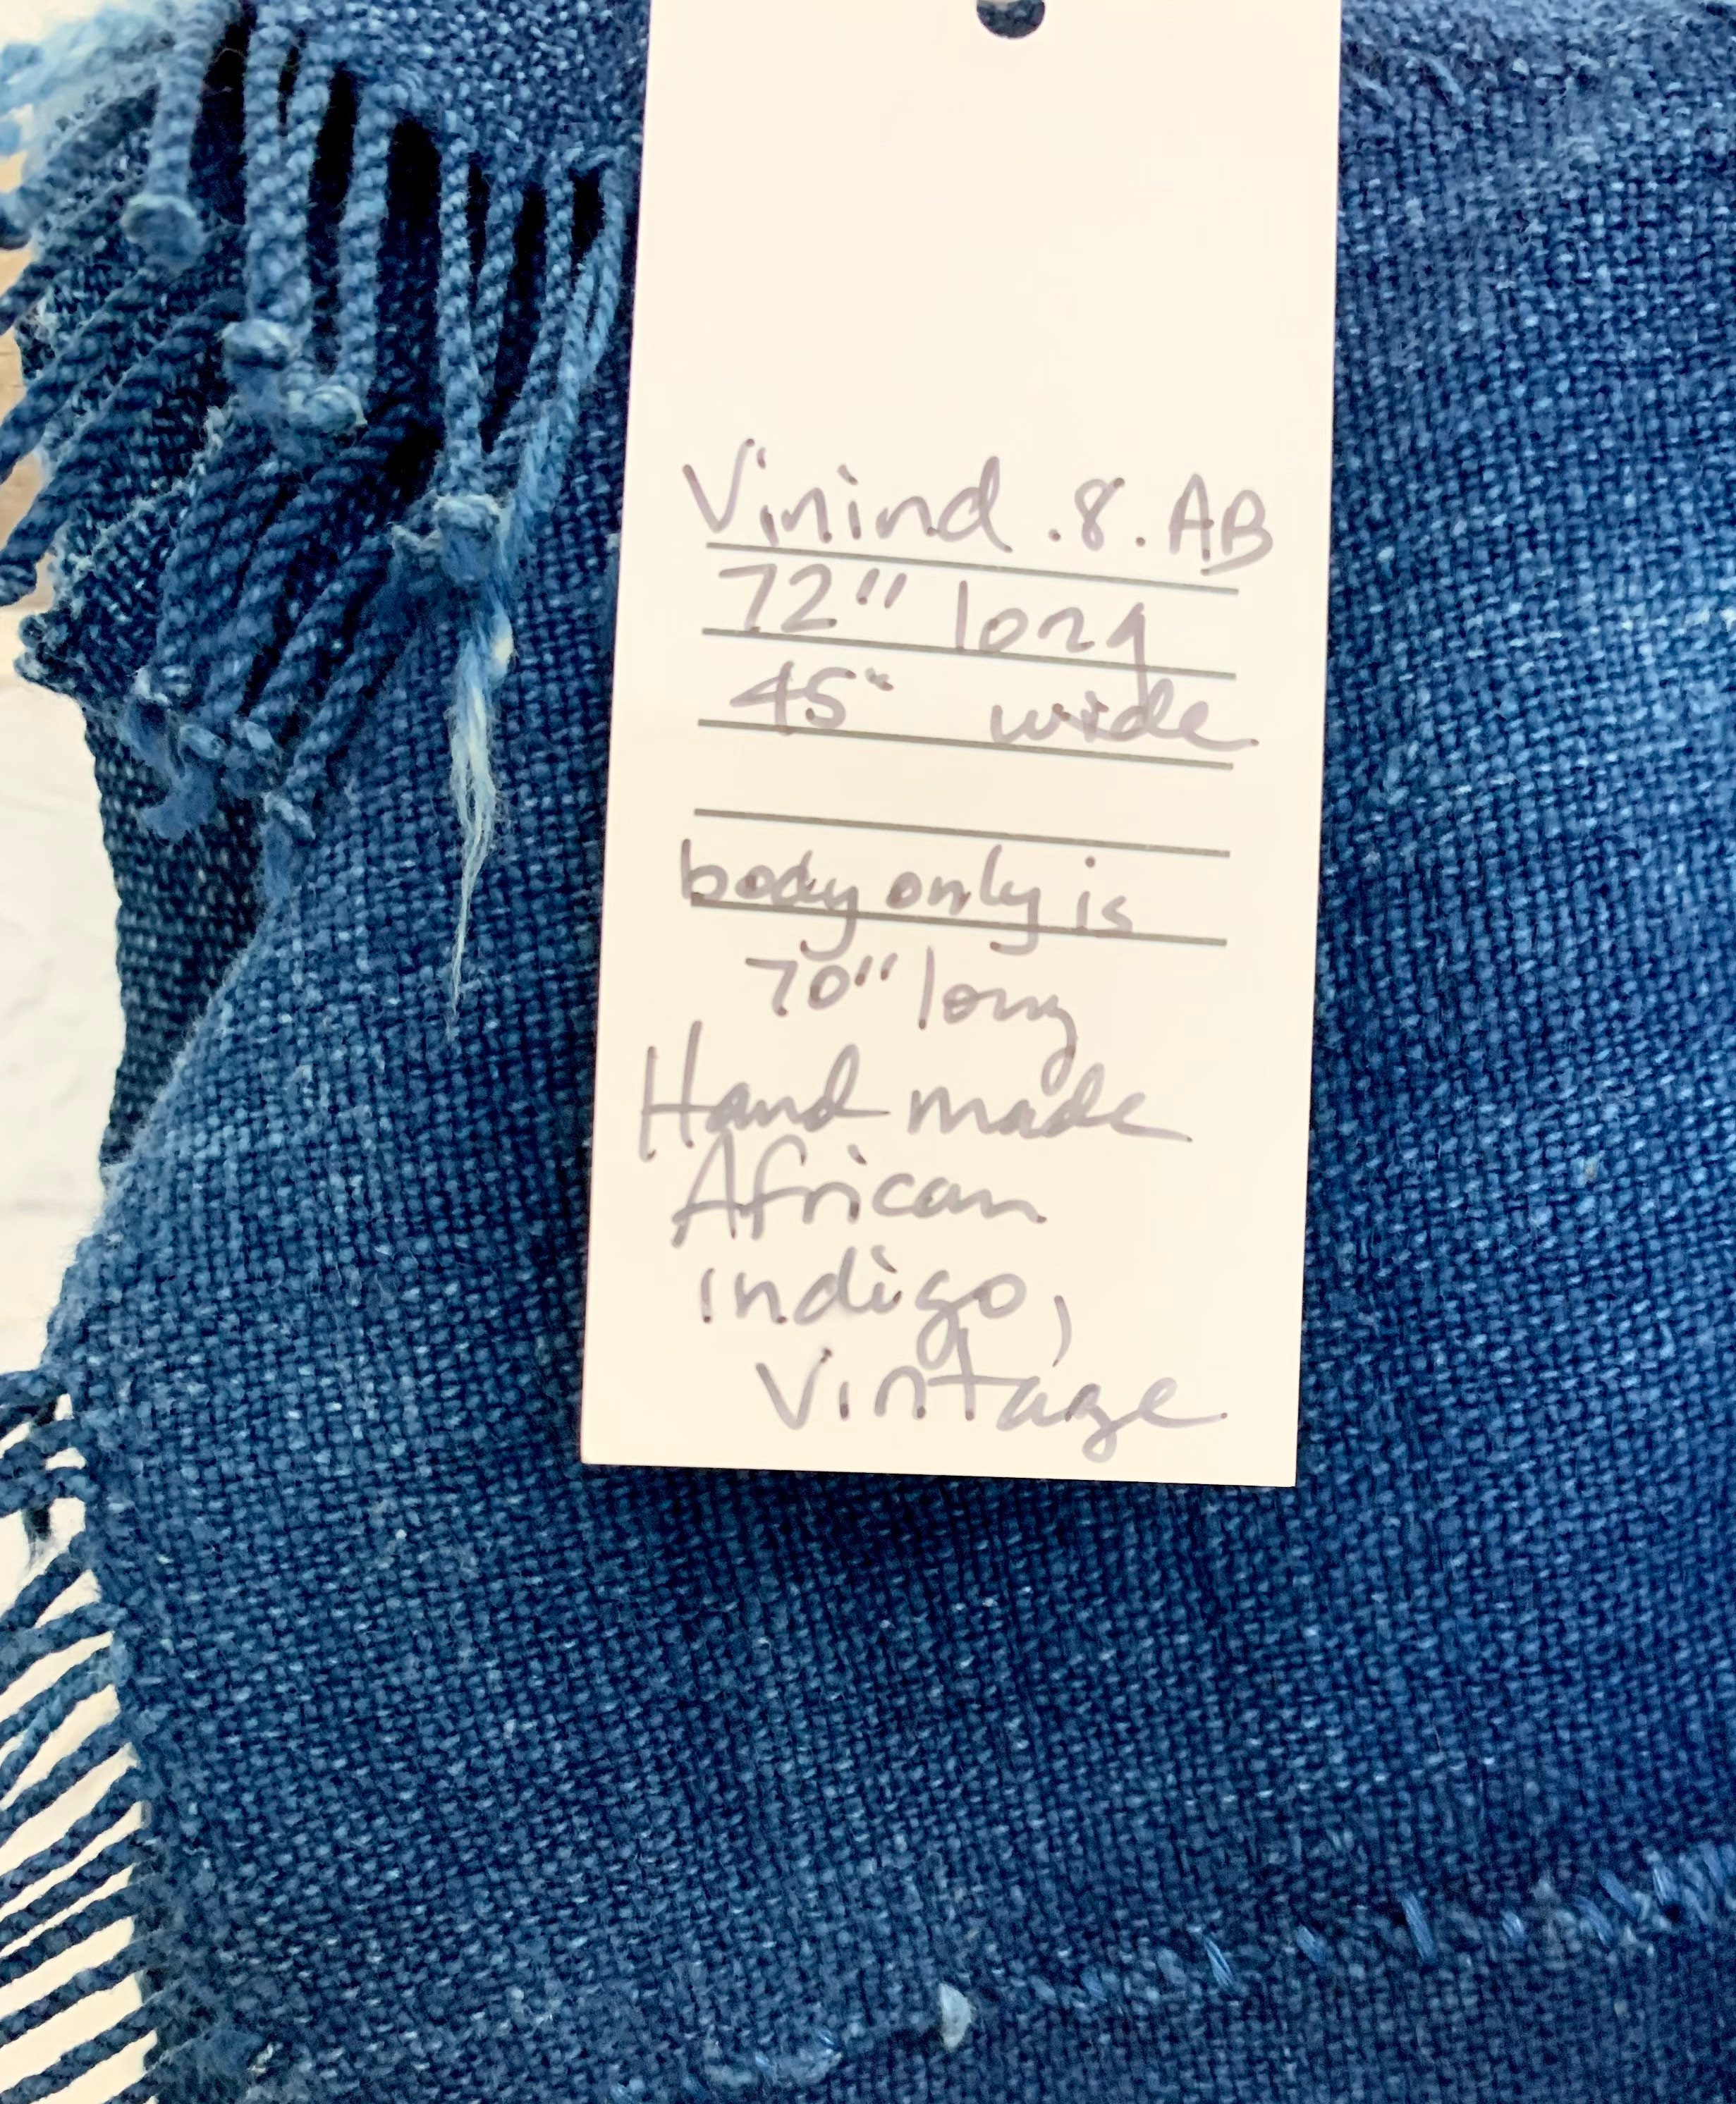 Vinind.8.AB
72" long
45" wide
body only is
70" long
Hand made
African
indigo,
Vintage